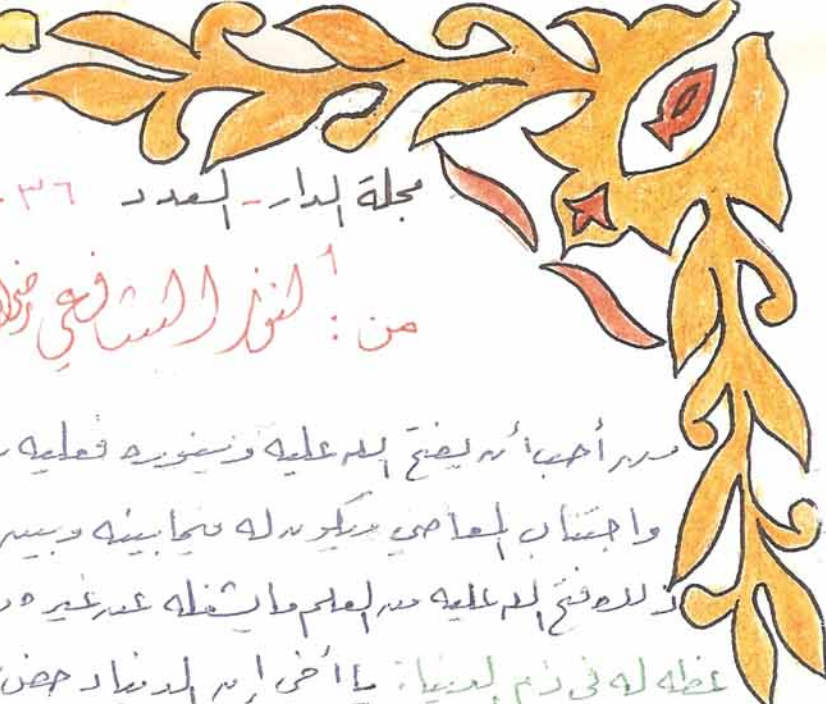 مجلة الدار - العدد ٣٦
من : كنوز الشافعي
من أحب أن يفتح الله عليه وينوره فعليه
واجتناب المعاصي ويكون له فيما بينه وبين
ذلك فتح الله عليه من العلم ما يشغله عن غيره
عظة له في ذم الدنيا : يا أخي إن الدنيا دحض